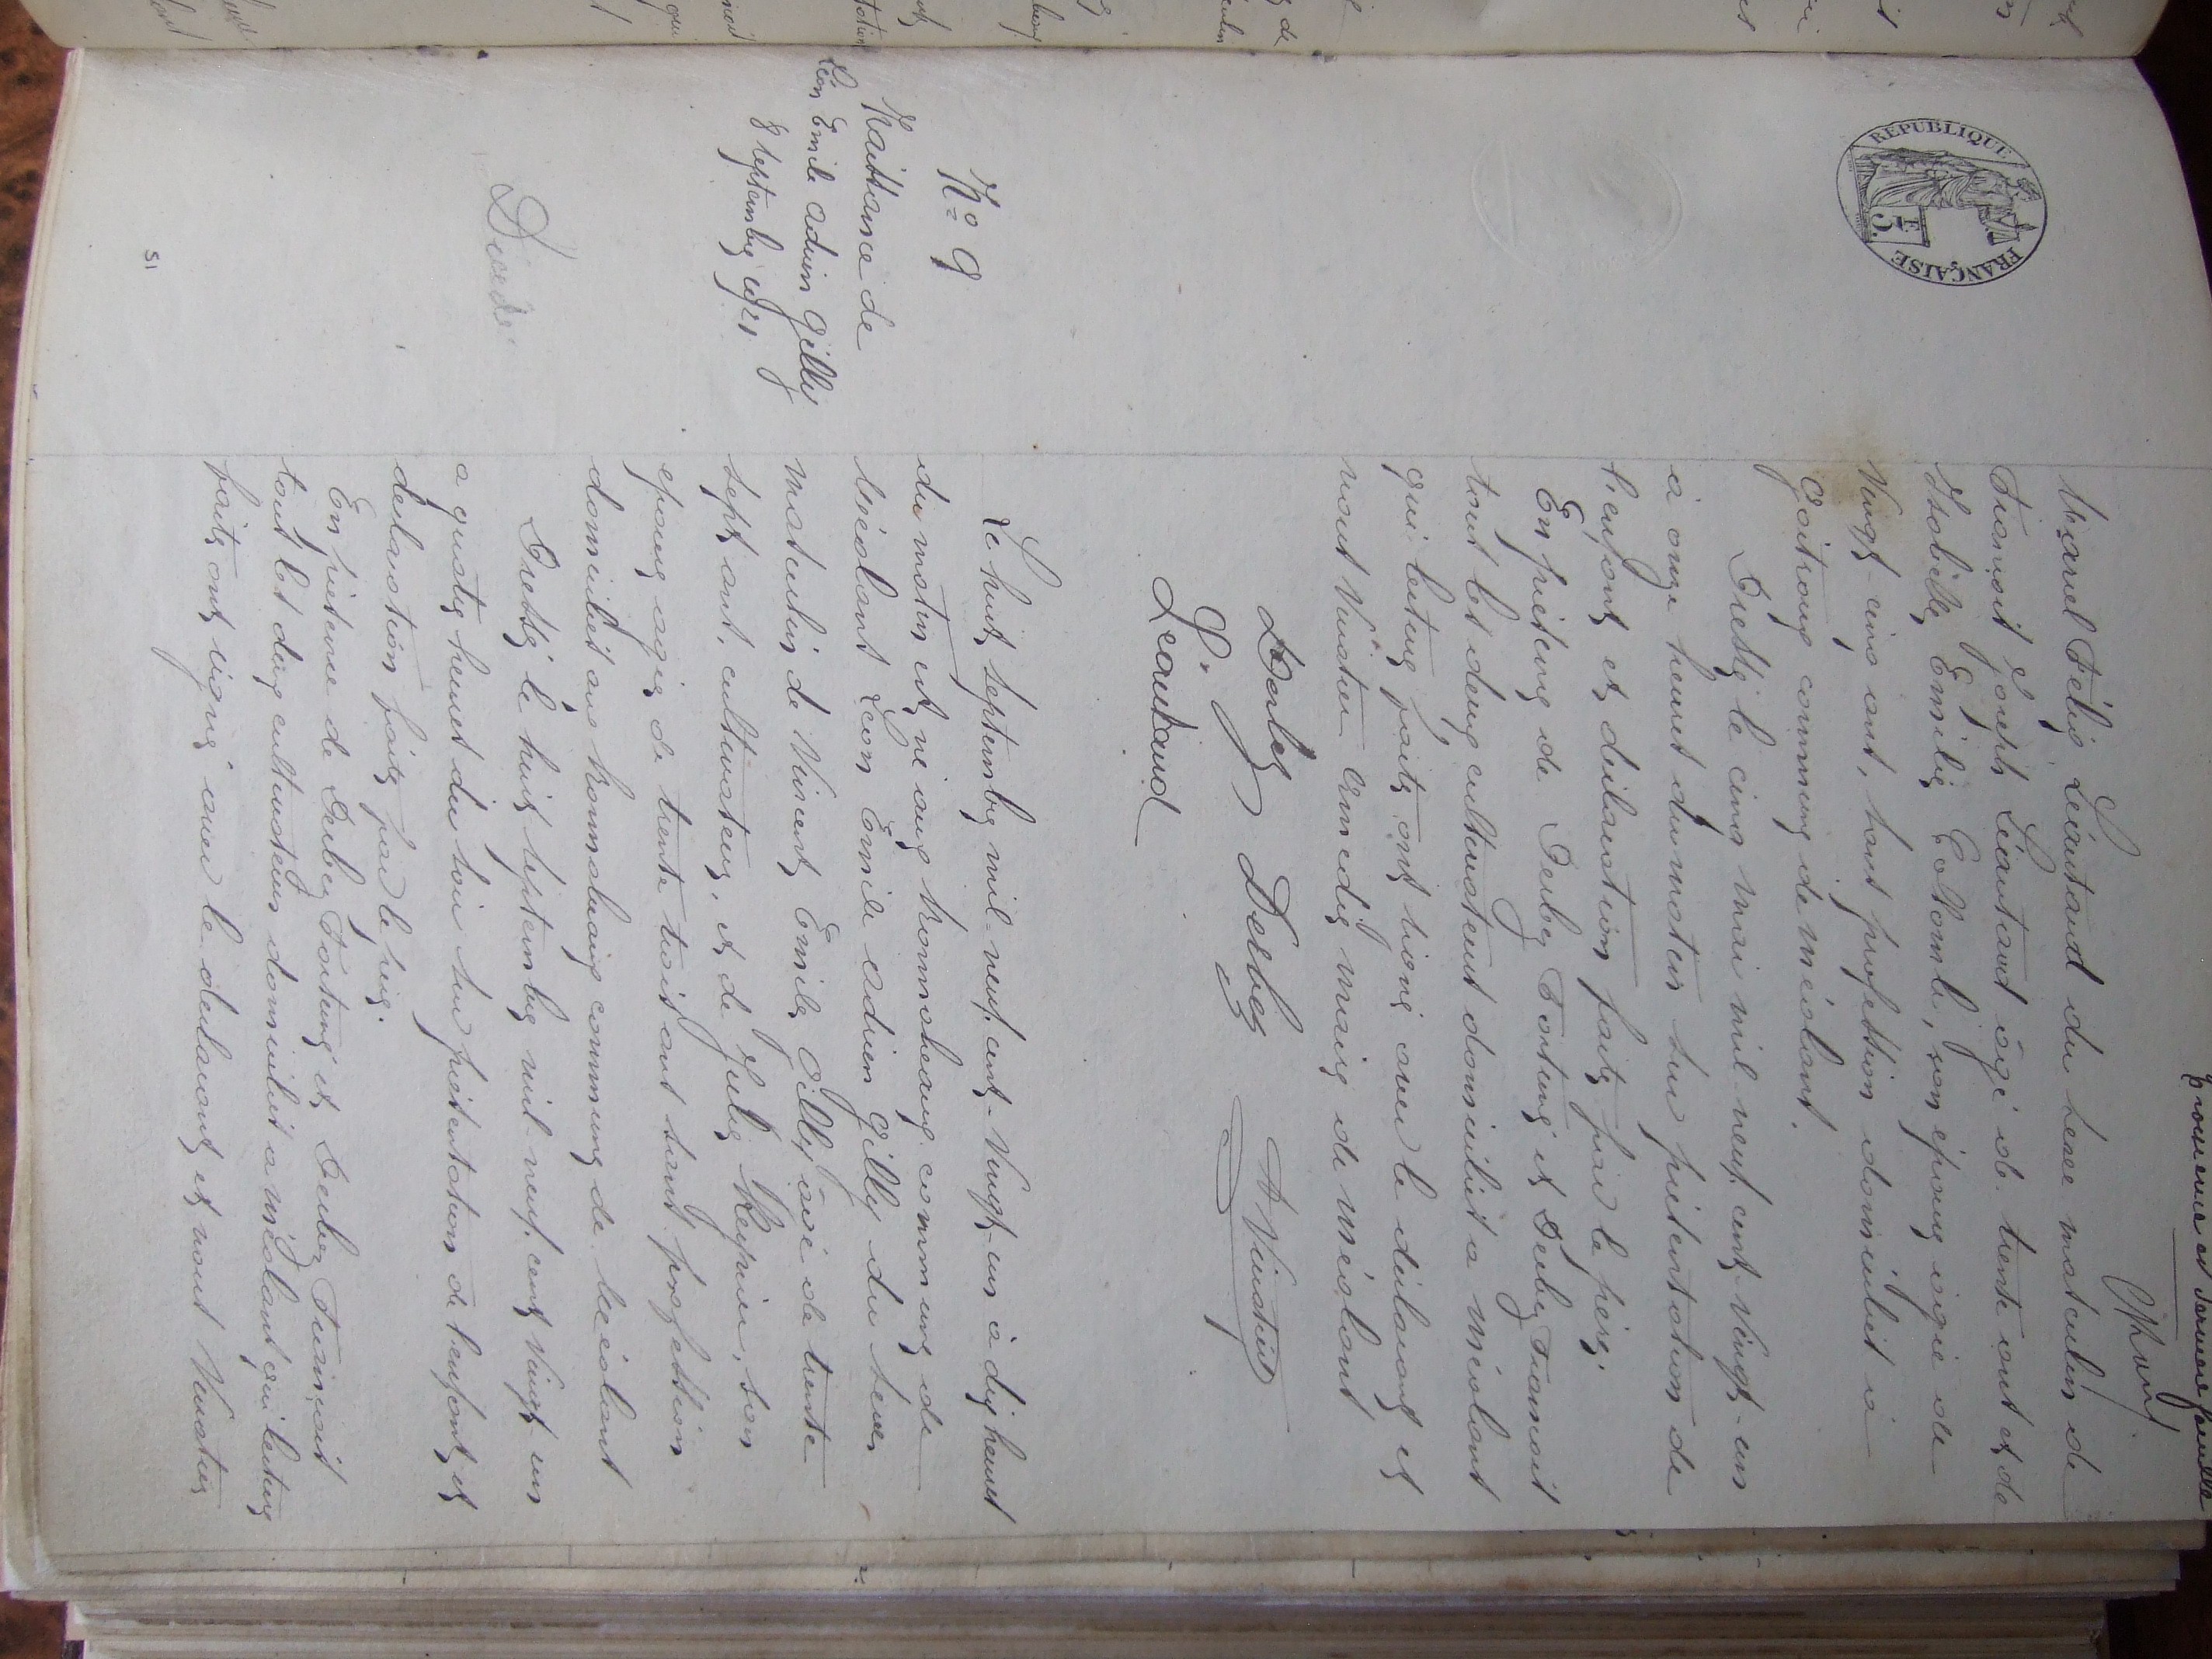 première et dernière feuille
RÉPUBLIQUE FRANÇAISE
Marcel Félix Léautaud du sexe masculin de
François Joseph Léautaud âgé de trente ans et de
Isabelle Emilie Colomb, son épouse agée de
Vingt-cinq ans, sans profession domiciliés à
commune de Méolans.
Dressé le cinq mai mil neuf cent-vingt-un
à onze heures du matin sur présentation de
l'enfant et déclaration faite par le père.
En présence de Derbez Fortuné et Derbez François
tous les deux cultivateurs domiciliés a méolans
qui lecture faite ont signé avec le déclarant et
nous maire de méolans
Derbez Derbez
Léautaud
N° 9
Naissance de
Léon Emile adrien Gilly
8 septembre 1921
Décédé
Le huit septembre mil-neuf-cent-Vingt-un à dix heures
du matin est né aux commune de
Méolans Léon Emile adrien Gilly du sexe
masculin de Vincent Emile Gilly âgé de trente
sept ans, cultivateur, et de Julie son
épouse agée de trente trois ans sans profession
domiciliés aux commune de Méolans
Dressé le huit septembre mil-neuf-cent Vingt-un
a quatre heures du soir sur présentation de l'enfant et
déclaration faite par le père.
En présence de Derbez Fortuné et Derbez François
tous les deux cultivateurs domiciliés a méolans qui lecture
faite ont signé avec le déclarant et nous
51